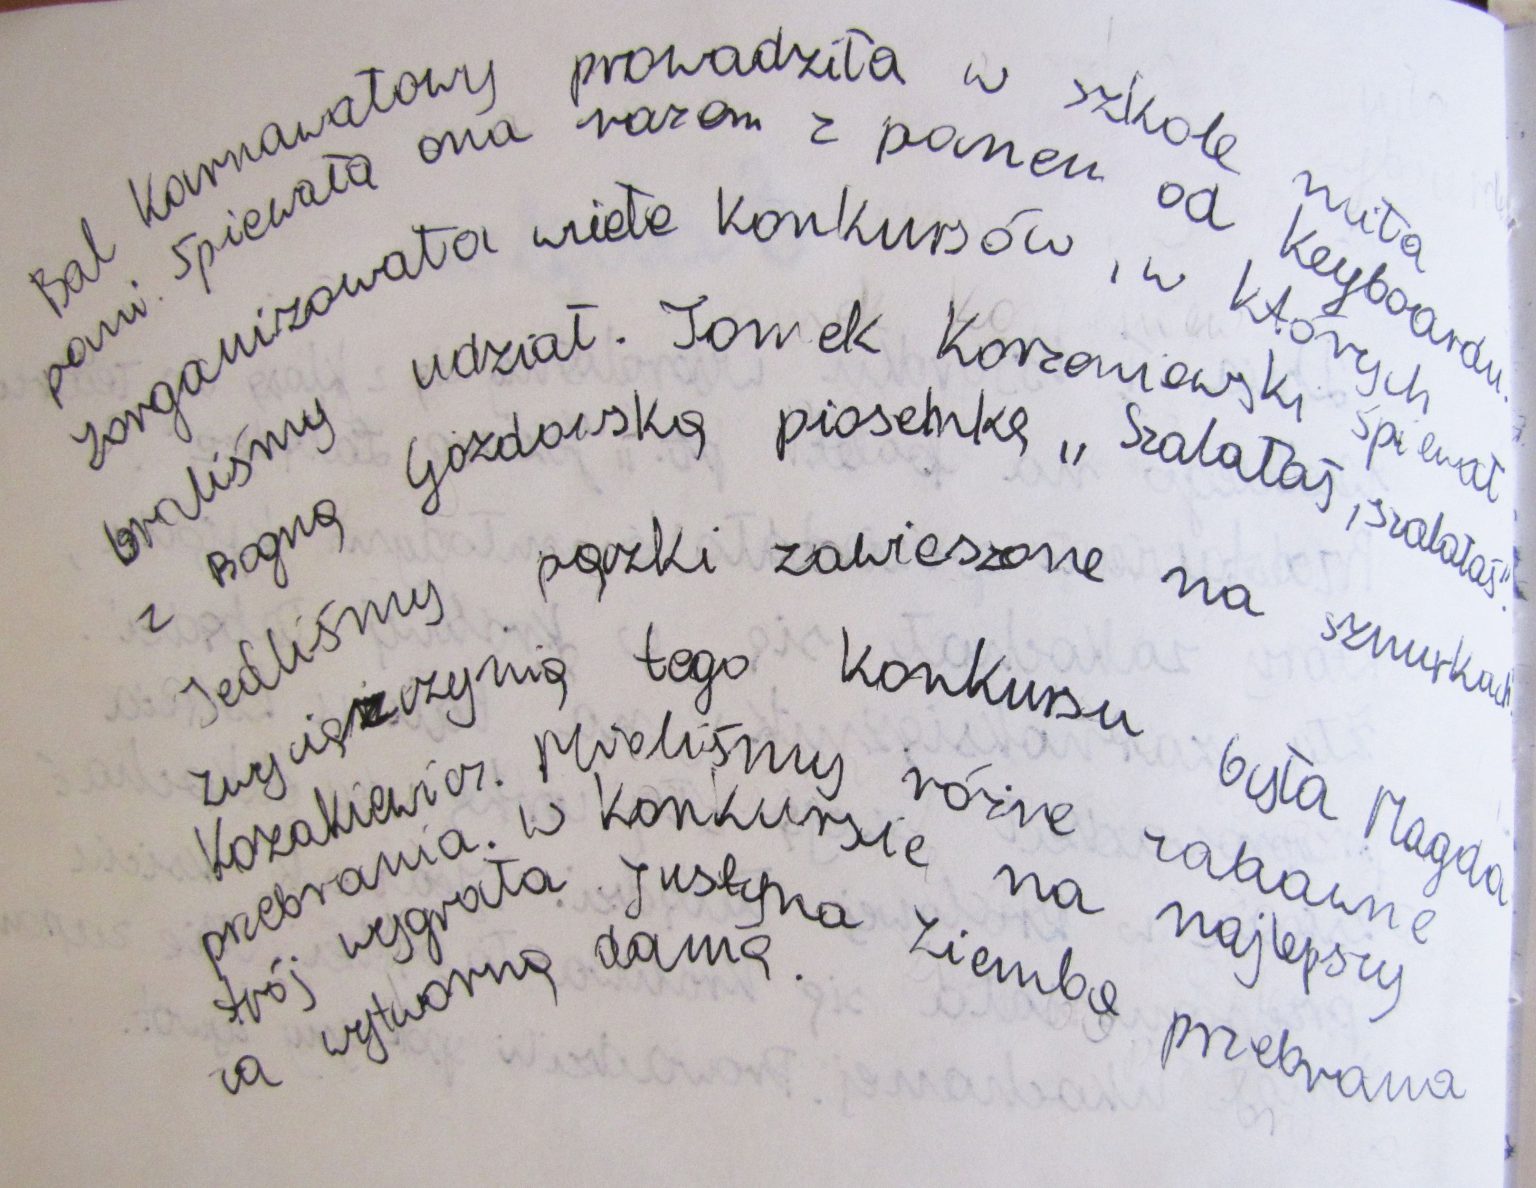 Bal karnawałowy prowadziła w szkole miła
pani. Śpiewała ona razem z panem od keyboardu.
Zorganizowała wiele konkursów, w których
braliśmy udział. Tomek Korzeniowski śpiewał
z Bogną Gozdowską piosenkę „Szalałaś, szalałaś".
Jedliśmy pączki zawieszone na sznurkach.
Zwyciężczynią tego konkursu była Magda
Kozakiewicz. Mieliśmy różne zabawne
przebrania. W konkursie na najlepszy
strój wygrała Justyna Ziemba przebrana
za wytworną damą.